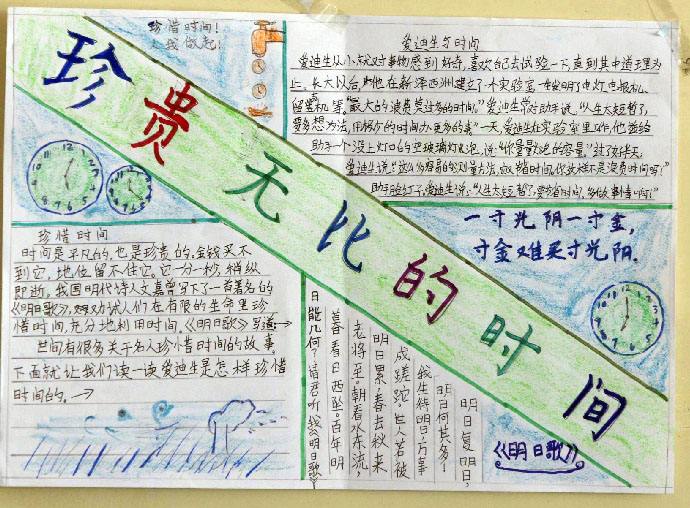 珍惜时间!
从我做起!
珍贵无比的时间
爱迪生与时间
爱迪生从小就对事物感到好奇,喜欢自己去试验一下,直到其中道理为
止。长大以后,他在新泽西州建立了一个实验室一生发明了电灯、电报机、
留声机等。"最大的浪费莫过多的时间。"爱迪生常对助手说,"人生太短暂了,
要多想办法,用极少的时间办更多的事"一天,爱迪生在实验室里工作,他递给
助手一个没上灯口的空玻璃灯泡,说:"你量量灯泡的容量。"过了好半天,
爱迪生说:"
助手脸红了,爱迪生说:"人生太短暂了,要节省时间,多做事情啊!"
一寸光阴一寸金,
寸金难买寸光阴.
珍惜时间
时间是平凡的,也是珍贵的。金钱买不
到它,地位留不住它。它一分一秒,稍纵
即逝,我国明代诗人文嘉曾写下了一首著名的
《明日歌》,劝试人们在有限的生命里珍
惜时间,充分地利用时间,《明日歌》写道→
世间有很多关于名人珍惜时间的故事。
下面就让我们读一读爱迪生是怎样珍惜
时间的。→
明日复明日,
明日何其多!
我生待明日,万事
成蹉跎。世人若被
明日累,春去秋来
老将至。朝看水东流,
暮看日西坠。百年明
日能几何?请君听我《明日歌》
《明日歌》